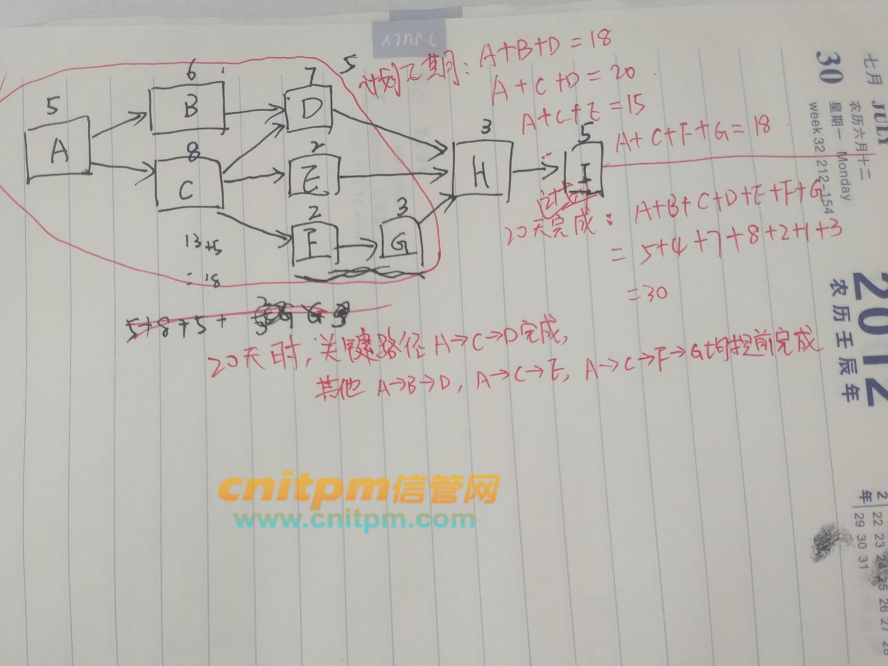 7 JULY
七月 JULY
30
星期一 Monday
农历六月十二
week 32 212-154
2012
农历壬辰年
2
年
22 23 24 25 26 27 28
29 30 31
计划工期: A+B+D = 18
A+C+D = 20
A+C+E = 15
A+C+F+G = 18
5
6
7
5
A
B
D
8
2
3
5
C
E
H
I
2
3
F
G
13+5
= 18
5+8+5+
20天完成: A+B+C+D+E+F+G
= 5+4+7+8+2+1+3
=30
20天时, 关键路径 A→C→D完成,
其他 A→B→D, A→C→E, A→C→F→G均提前完成
cnitpm信管网
www.cnitpm.com